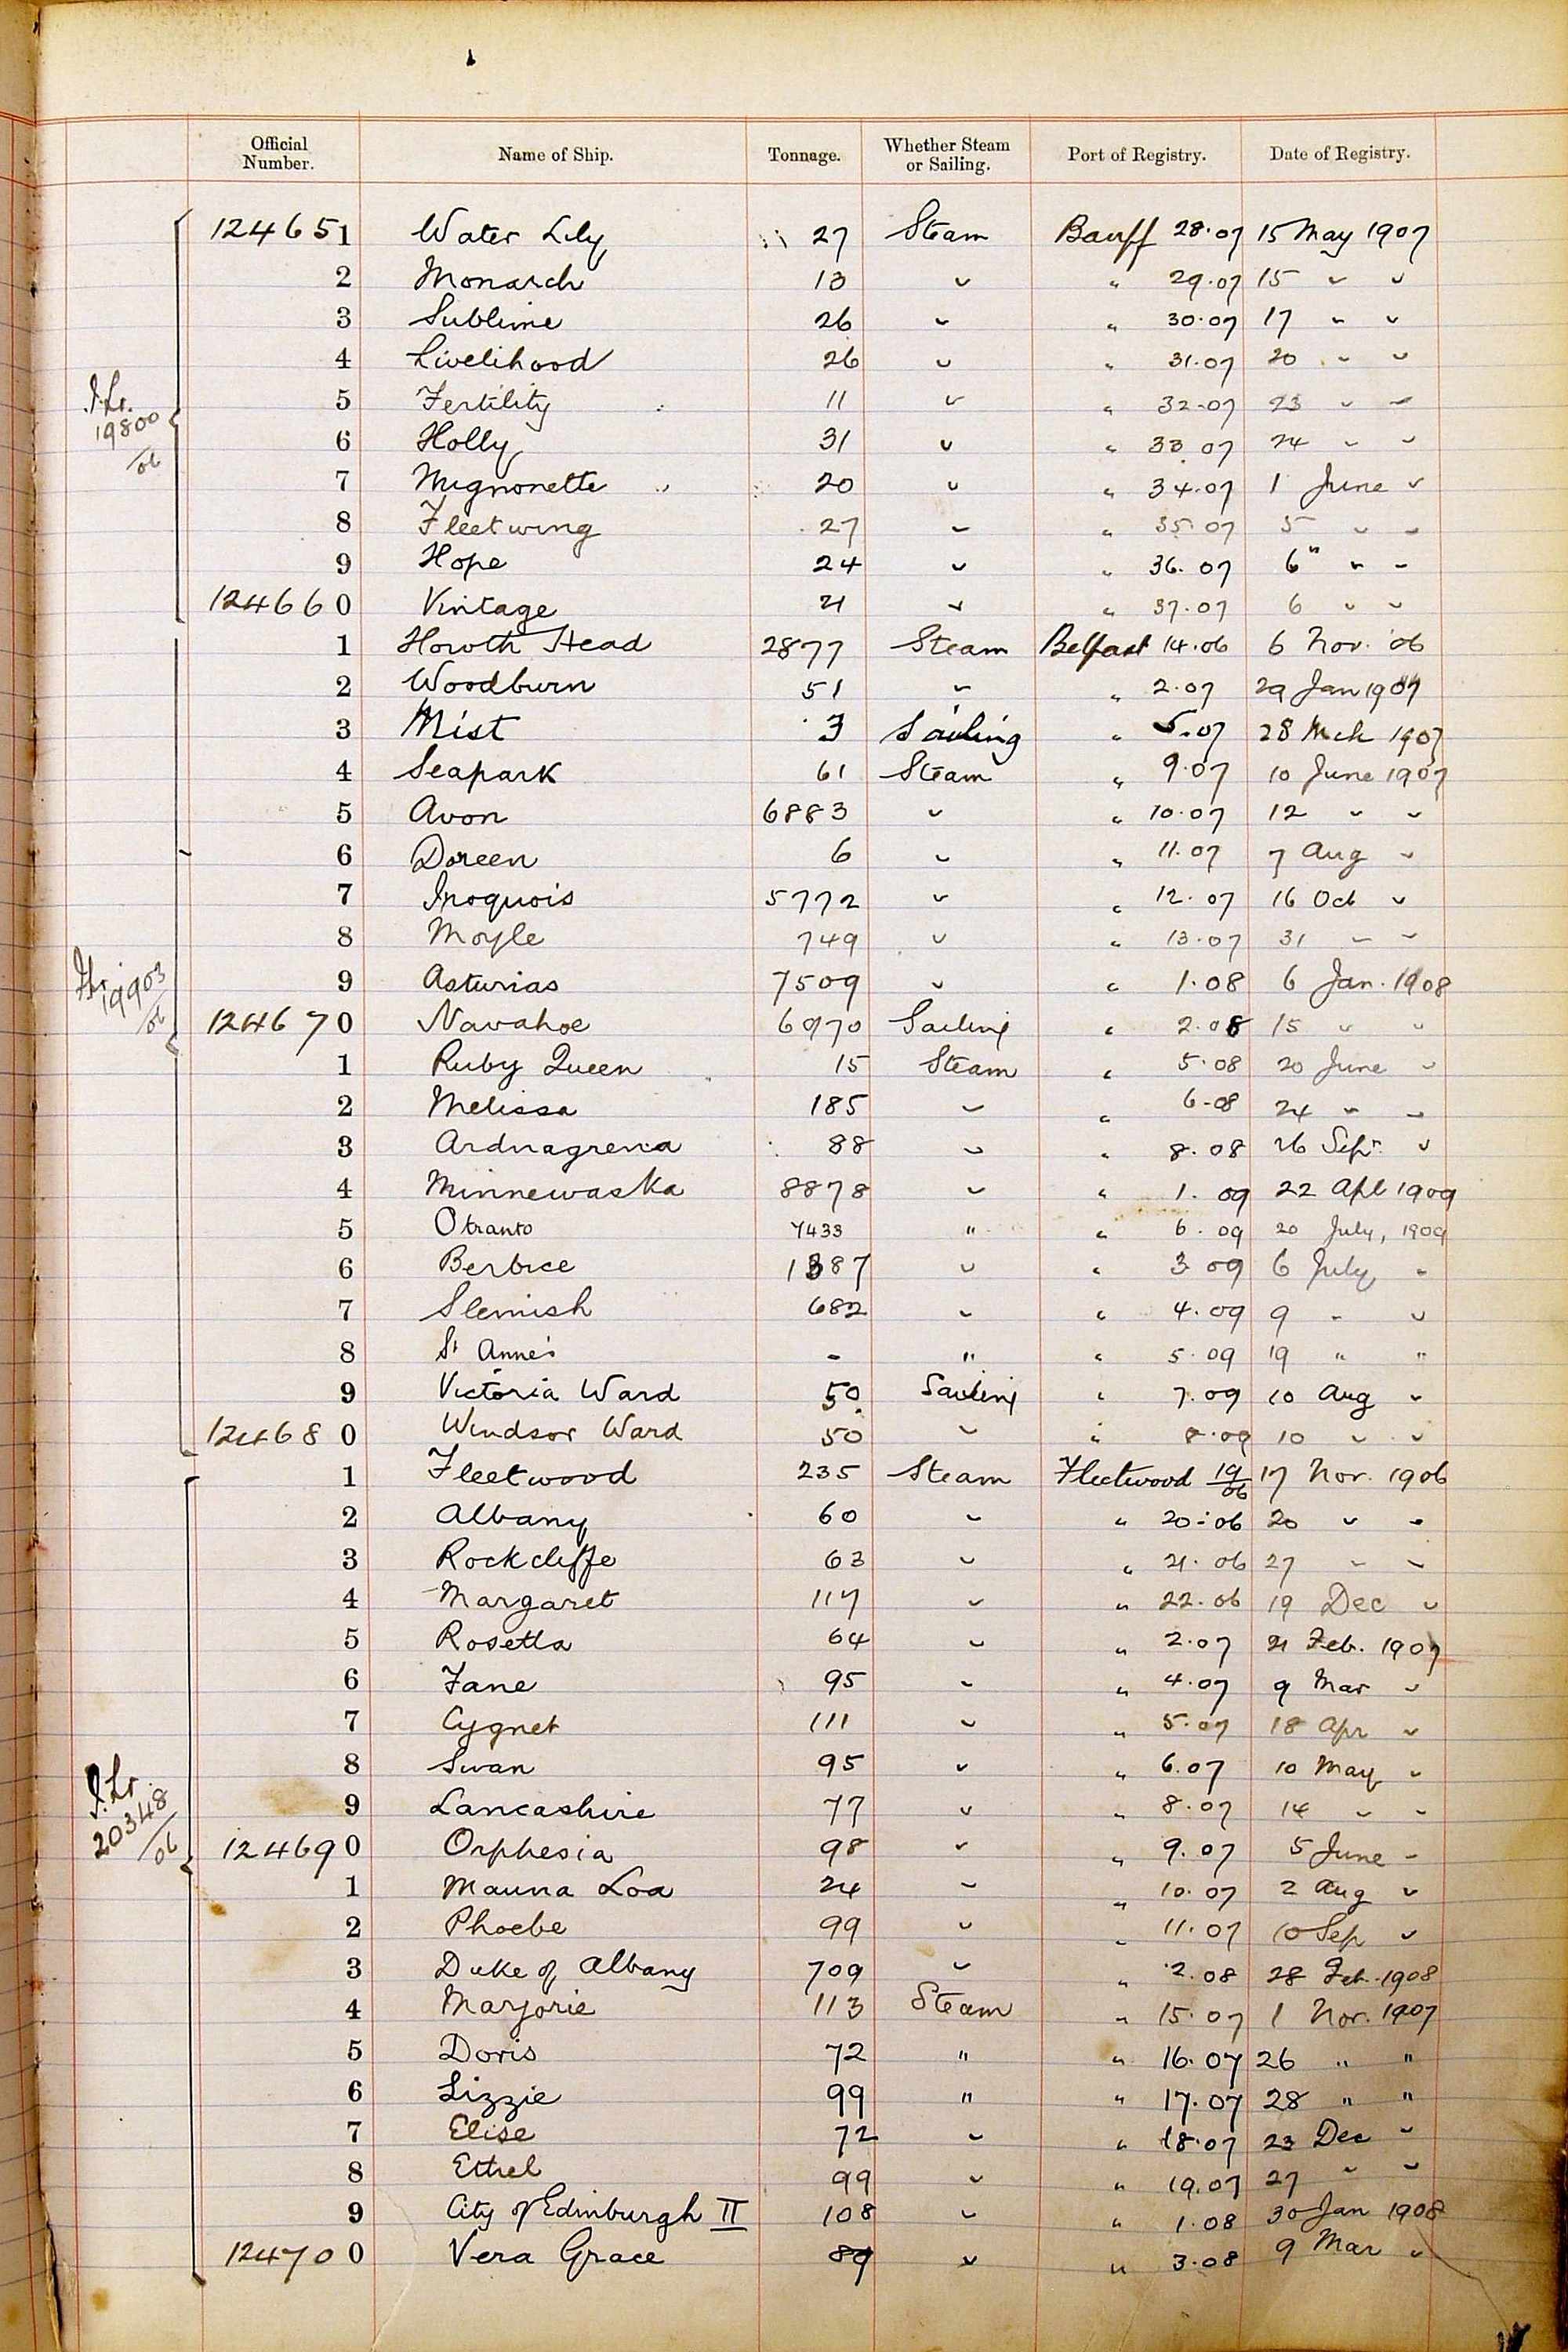 Official Number. Name of Ship. Tonnage. Whether Steam or Sailing. Port of Registry. Date of Registry.
124651 Water Lily 27 Steam Banff 28.07 15 May 1907
2 Monarch 13 " " 29.07 15 " "
3 Sublime 26 " " 30.07 17 " "
4 Livelihood 26 " " 31.07 20 " "
5 Fertility 11 " " 32.07 23 " "
I.Lr.
19800
/06
6 Holly 31 " " 33.07 24 " "
7 Mignonette 20 " " 34.07 1 June "
8 Fleetwing 27 " " 35.07 5 " "
9 Hope 24 " " 36.07 6" " "
124660 Vintage 21 " " 37.07 6 " "
1 Howth Head 2877 Steam Belfast 14.06 6 Nov. '06
2 Woodburn 51 " " 2.07 29 Jan 1907
3 Mist 3 Sailing " 5.07 28 Mch 1907
4 Seapark 61 Steam " 9.07 10 June 1907
5 Avon 6883 " " 10.07 12 " "
6 Doreen 6 " " 11.07 7 Aug "
7 Iroquois 5772 " " 12.07 16 Oct "
8 Moyle 749 " " 13.07 31 " "
19903
/06
9 Asturias 7509 " " 1.08 6 Jan. 1908
124670 Navahoe Sailing " 2.08 15 " "
1 Ruby Queen 15 Steam " 5.08 20 June "
2 Melissa 185 " " 6.08 24 " "
3 Ardnagrena 88 " " 8.08 26 Sepr. "
4 Minnewaska 8878 " " 1.09 22 Apl 1909
5 Otranto 7433 " " 6.09 20 July, 1909
6 Berbice 1387 " " 3.09 6 July "
7 Slemish 682 " " 4.09 9 " "
8 St Anne's - " " 5.09 19 " "
9 Victoria Ward 50 Sailing " 7.09 10 Aug "
124680 Windsor Ward 50 " " 8.09 10 " "
1 Fleetwood 235 Steam Fleetwood 19/06 17 Nov. 1906
2 Albany 60 " " 20.06 20 " "
3 Rockcliffe 63 " " 21.06 27 " "
4 Margaret 117 " " 22.06 19 Dec "
5 Rosetta 64 " " 2.07 21 Feb. 1907
6 Fane 95 " " 4.07 9 Mar "
7 Cygnet 111 " " 5.07 18 Apr "
8 Swan 95 " " 6.07 10 May "
I.Lr
20348
/06
9 Lancashire 77 " " 8.07 14 " "
124690 Orphesia 98 " " 9.07 5 June "
1 Mauna Loa 24 " " 10.07 2 Aug "
2 Phoebe 99 " " 11.07 10 Sep "
3 Duke of Albany 709 " " 2.08 28 Feb. 1908
4 Marjorie 113 Steam " 15.07 1 Nov. 1907
5 Doris 72 " " 16.07 26 " "
6 Lizzie 99 " " 17.07 28 " "
7 Elise 72 " " 18.07 23 Dec "
8 Ethel 99 " " 19.07 27 " "
9 City of Edinburgh II 108 " " 1.08 30 Jan 1908
124700 Vera Grace 89 " " 3.08 9 Mar "